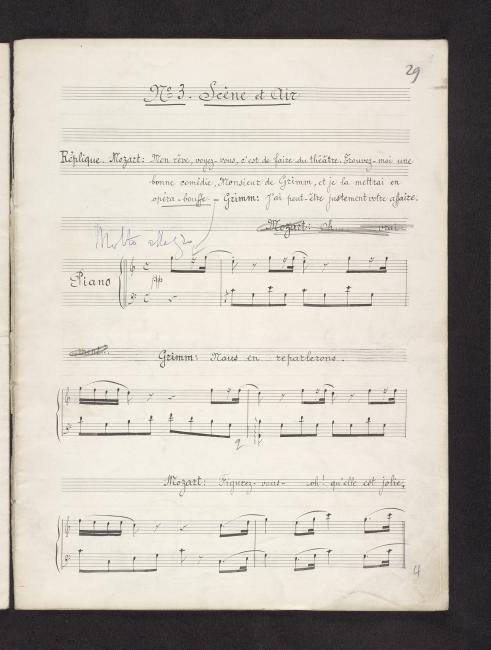 29
No 3. Scène et Air
Réplique. Mozart: Mon rêve, voyez-vous, c'est de faire du théâtre. Trouvez-moi une
bonne comédie, Monsieur de Grimm, et je la mettrai en
opéra-bouffe - Grimm: J'ai peut-être justement votre affaire.
Mozart: oh vrai
Molto allegro
Piano
pp
Grimm: Nous en reparlerons.
Mozart: Figurez-vous - oh! qu'elle est jolie;
4